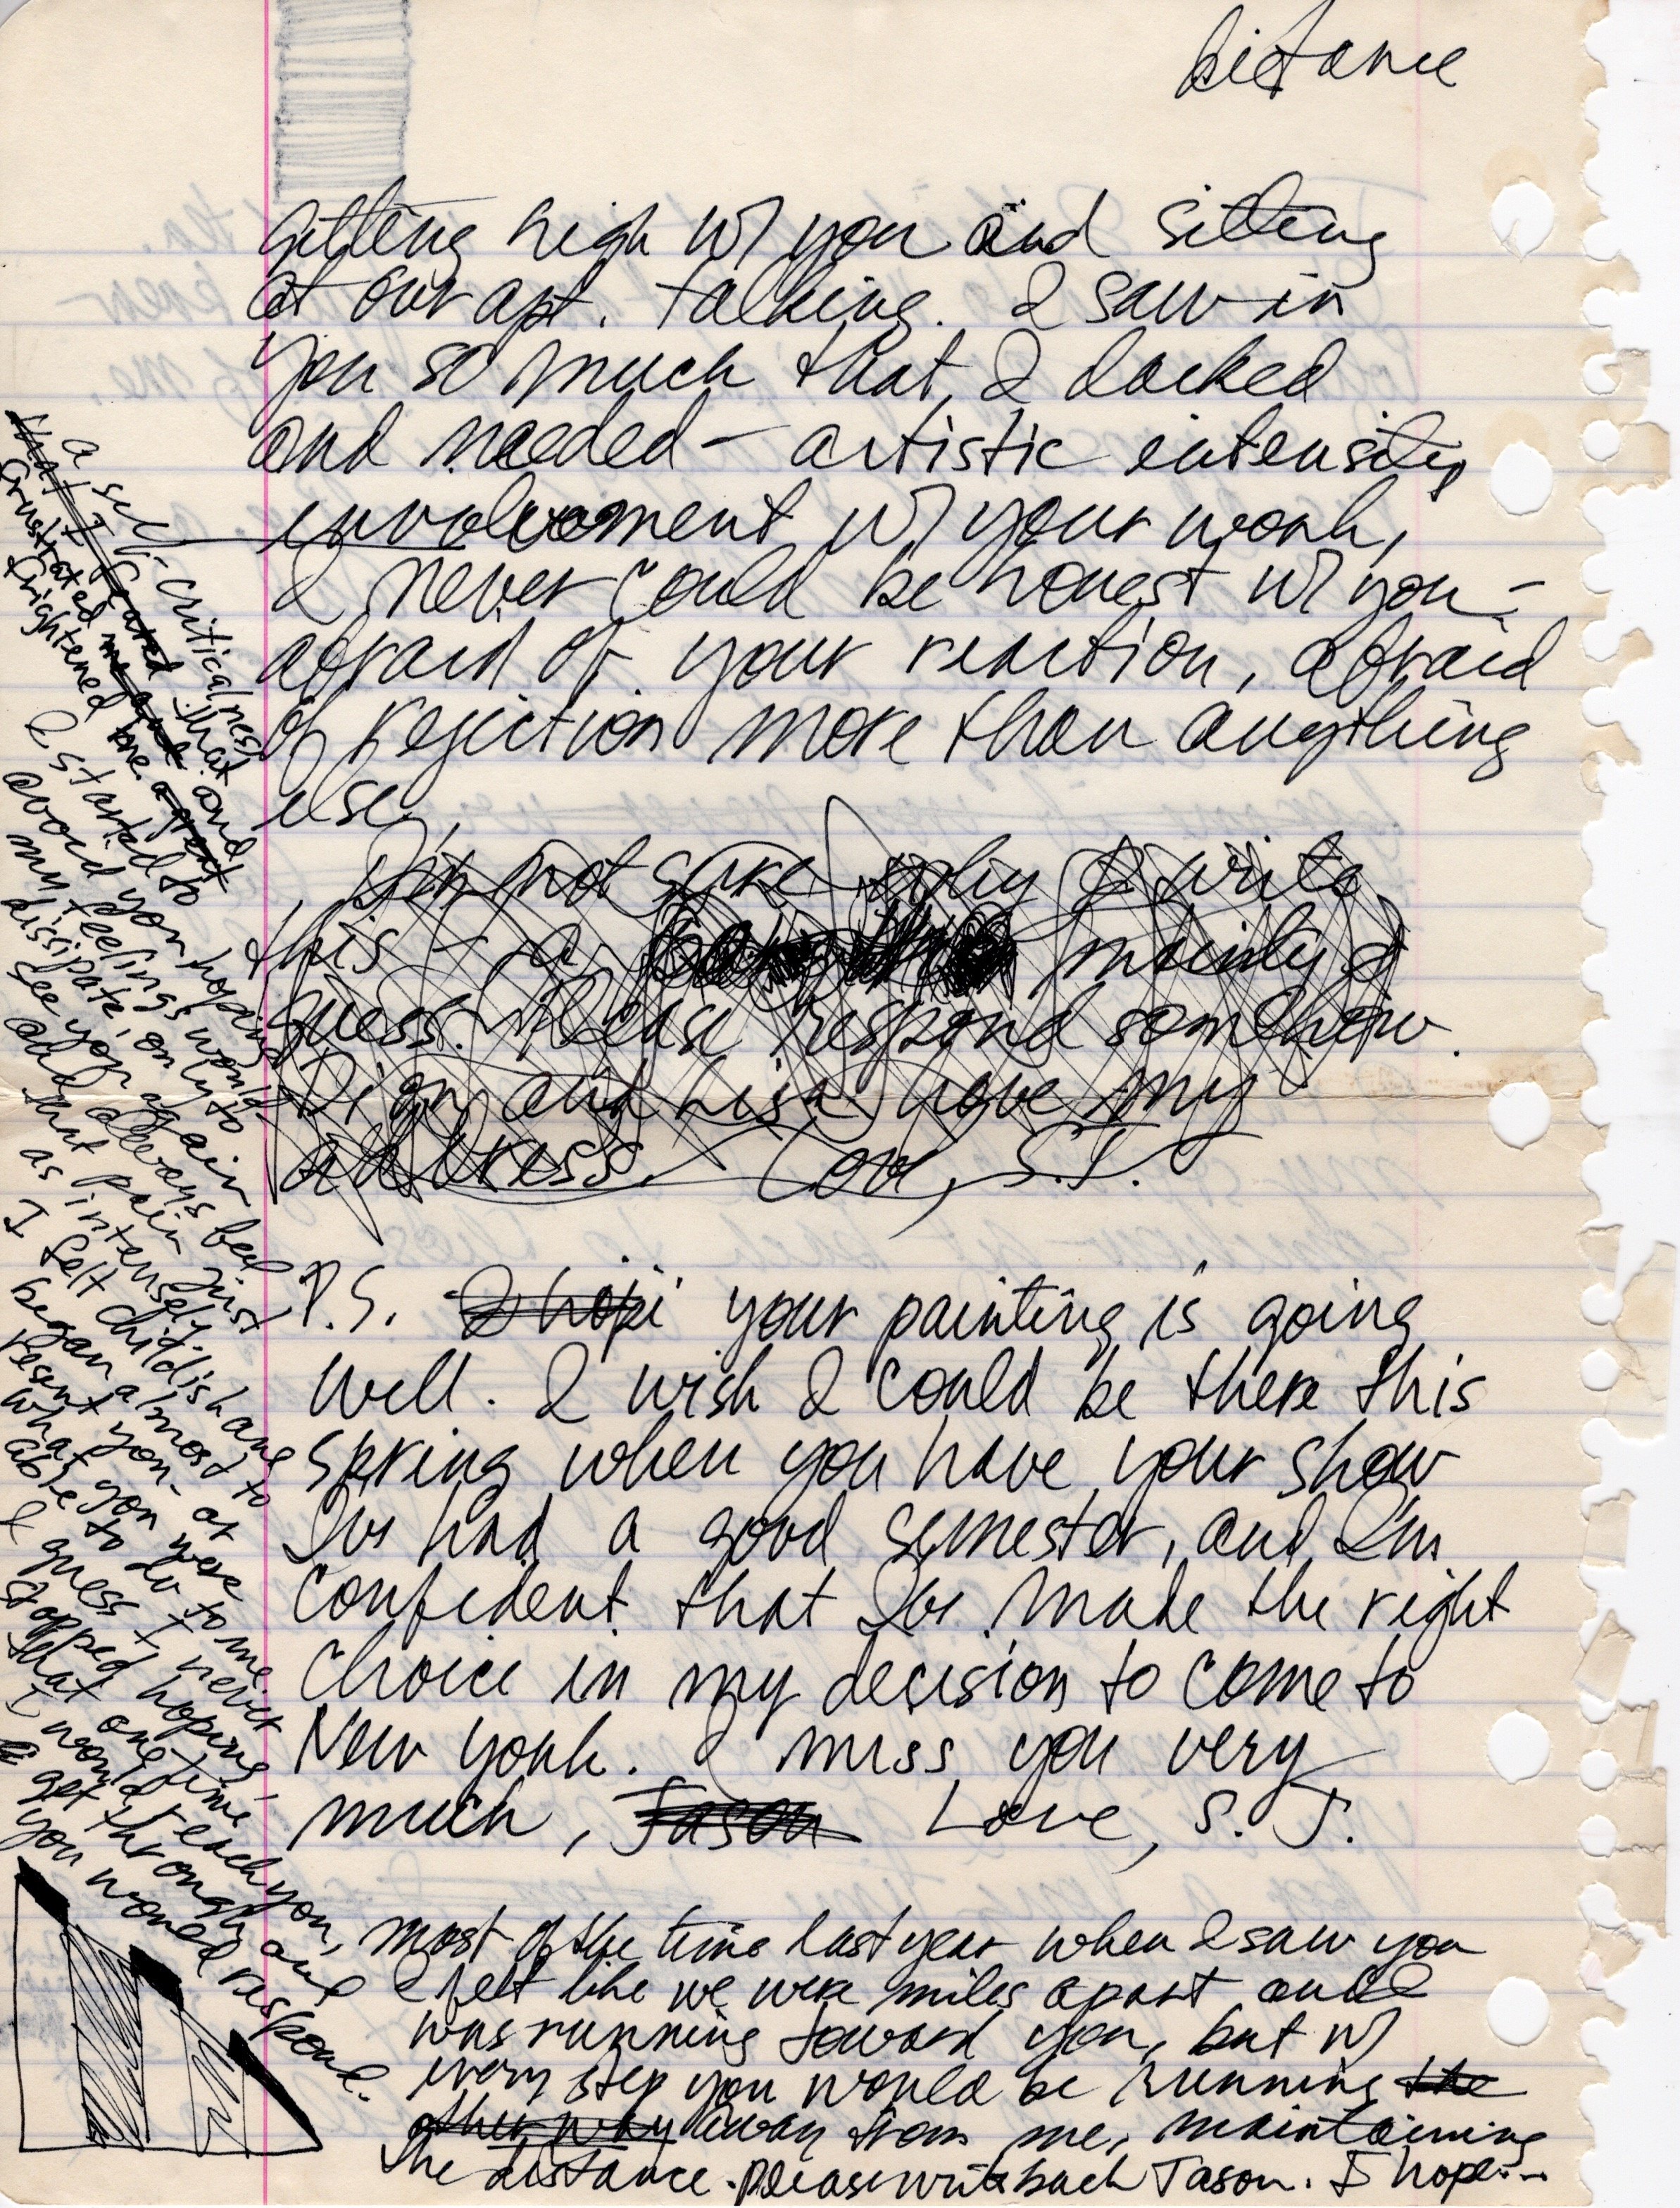 distance
getting high w/ you and sitting
at our apt. talking. I saw in
you so much that I lacked
and needed – artistic intensity
involvement w/ your work,
I never could be honest w/ you –
afraid of your reaction, afraid
of rejection more than anything
else.
I'm not sure why I write
this – a mainly I
guess. Please respond somehow.
Dian and Lisa have my
address. Love, S.J.
P.S. I hope your painting is going
well. I wish I could be there this
spring when you have your show
I've had a good semester, and I'm
confident that I've made the right
choice in my decision to come to
New York. I miss you very
much, Jason Love, S.J.
most of the time last year when I saw you
I felt like we were miles apart and I
was running toward you, but w/
every step you would be running the
other way away from me, maintaining
the distance. please write back Jason. I hope...
a self-criticalness
that I hated that
frustrated me and and
frightened me. a great
I started to
avoid you hoping
my feelings would
dissipate, only to
see you again
and always feel
that pain just
as intensely.
I felt childish and
began almost to
resent you – at
what you were
able to do to me.
I guess I never
stopped hoping,
that one time
I would reach you,
get through and
you would respond.